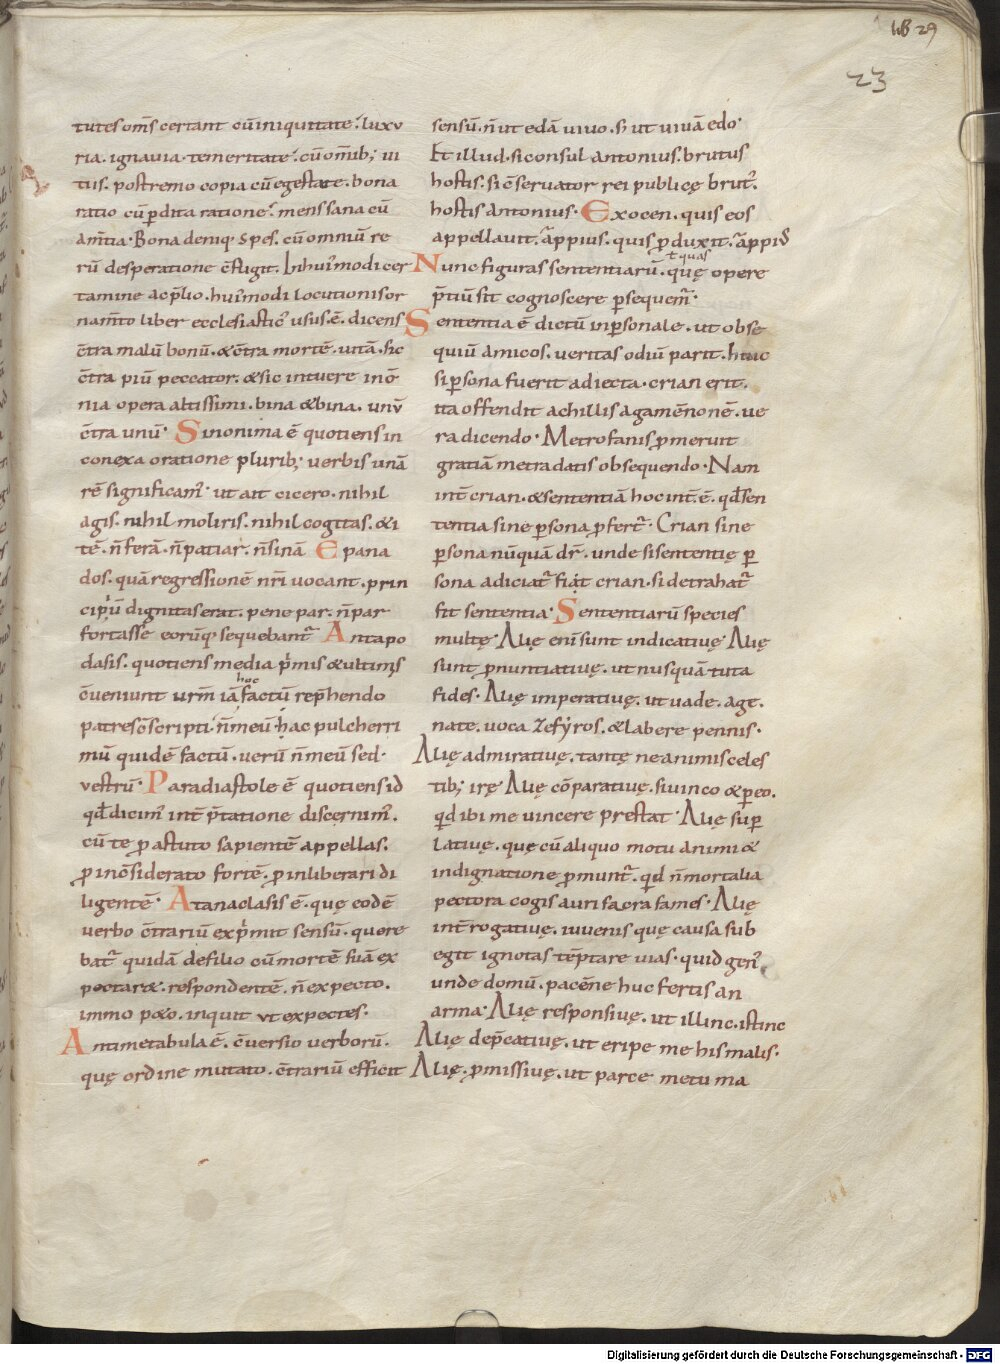 LIB 29
23
tutes om̄s certant cū iniquitate. luxu
ria. ignauia. temeritate. cū om̄ib; ui
tiis. postremo copia cū egestate. bona
ratio cū pdita ratione. mens sana cū
am̄tia. Bona deniq; spes. cū omniū re
rū desperatione c̄fligit. In hui'modi cer
tamine ac p̄lio. hui'modi locutionis or
nam̄to liber ecclesiastic' usus ē. dicens
c̄tra malū bonū. & c̄tra mortē. uitā. sic
c̄tra piū peccator. & sic intuere in ō
nia opera altissimi. bina & bina. unū
c̄tra unū. Sinonima ē quotiens in
conexa oratione plurib; uerbis unā
rē significam'. ut ait cicero. nihil
agis. nihil moliris. nihil cogitas. & i
tē. n̄ ferā. n̄ patiar. n̄ sinā Epana
dos. quā regressionē nr̄i uocant. prin
cipiū dignitas erat. pene par. n̄ par
fortasse eorū q; sequebant᷑ Antapo
dasis. quotiens media p̄mis & ultimis
c̄ueniunt ur̄m iā factū rep̄hendo
hoc
patres c̄scripti. n̄ meū. hac pulcherri
mū quidē factū. uerū n̄ meū sed.
vestrū. Paradiastole ē quotiens id
qd̄ dicim' int̄ p̄tatione discernim'.
cū te p astuto sapientē appellas.
p inc̄siderato fortē. p inliberari di
ligentē. Atanaclasis ē. quę eodē
uerbo c̄trariū exp̄mit sensū. quere
bat᷑ quidā de filio cū mortē suā ex
pectar&. respondentē. n̄ expecto.
immo p&o. inquit ut expectes.
Antimetabula ē. c̄uersio uerborū.
quę ordine mutato. c̄trariū efficit
sensū. n̄ ut edā uiuo. s; ut uiuā edo.
Et illud. si consul antonius. brutus
hostis. si c̄seruator rei publicę brut'.
hostis antonius. Exocen. quis eos
appellauit. appius. quis pduxit. appi'
Nunc figuras sententiarū. quę opere
ł quas
p̄tiū sit cognoscere psequem'.
Sententia ē dictū inpersonale. ut obse
quiū amicos. ueritas odiū parit. huic
si psona fuerit adiecta. crian erit.
ita offendit achillis agamēnonē. ue
ra dicendo. Metrofanis pmeruit
gratiā metradatis obsequendo. Nam
int̄ crian. & sententiā hoc int̄ ē. qd̄ sen
tentia sine psona pfert᷑. Crian sine
psona nūquā dr̄. unde si sententię p
sona adiciat᷑ fiat crian. si detrahat᷑
fit sententia. Sententiarū species
multę. Alię eni sunt indicatiuę. Alię
sunt pnuntiatiuę. ut nusquā tuta
fides. Alię imperatiuę. ut uade. age.
nate. uoca zefyros. & labere pennis.
Alię admiratiuę. tantę ne animis celes
tib; irę. Alię cōparatiuę. si uinco & peo.
qd ibi me uincere prestat. Alię sup
latiuę. quę cū aliquo motu animi &
indignatione pmunt᷑. qd n̄ mortalia
pectora cogis auri sacra fames. Alię
int̄rogatiuę. iuuenis quę causa sub
egit ignotas tēptare uias. quid gen'
unde domū. pacēne huc fertis an
arma. Alię responsiuę. ut illinc. istinc
Alię dep̄catiuę. ut eripe me his malis.
Alię. pmissiuę. ut parce metu ma
Digitalisierung gefördert durch die Deutsche Forschungsgemeinschaft - DFG